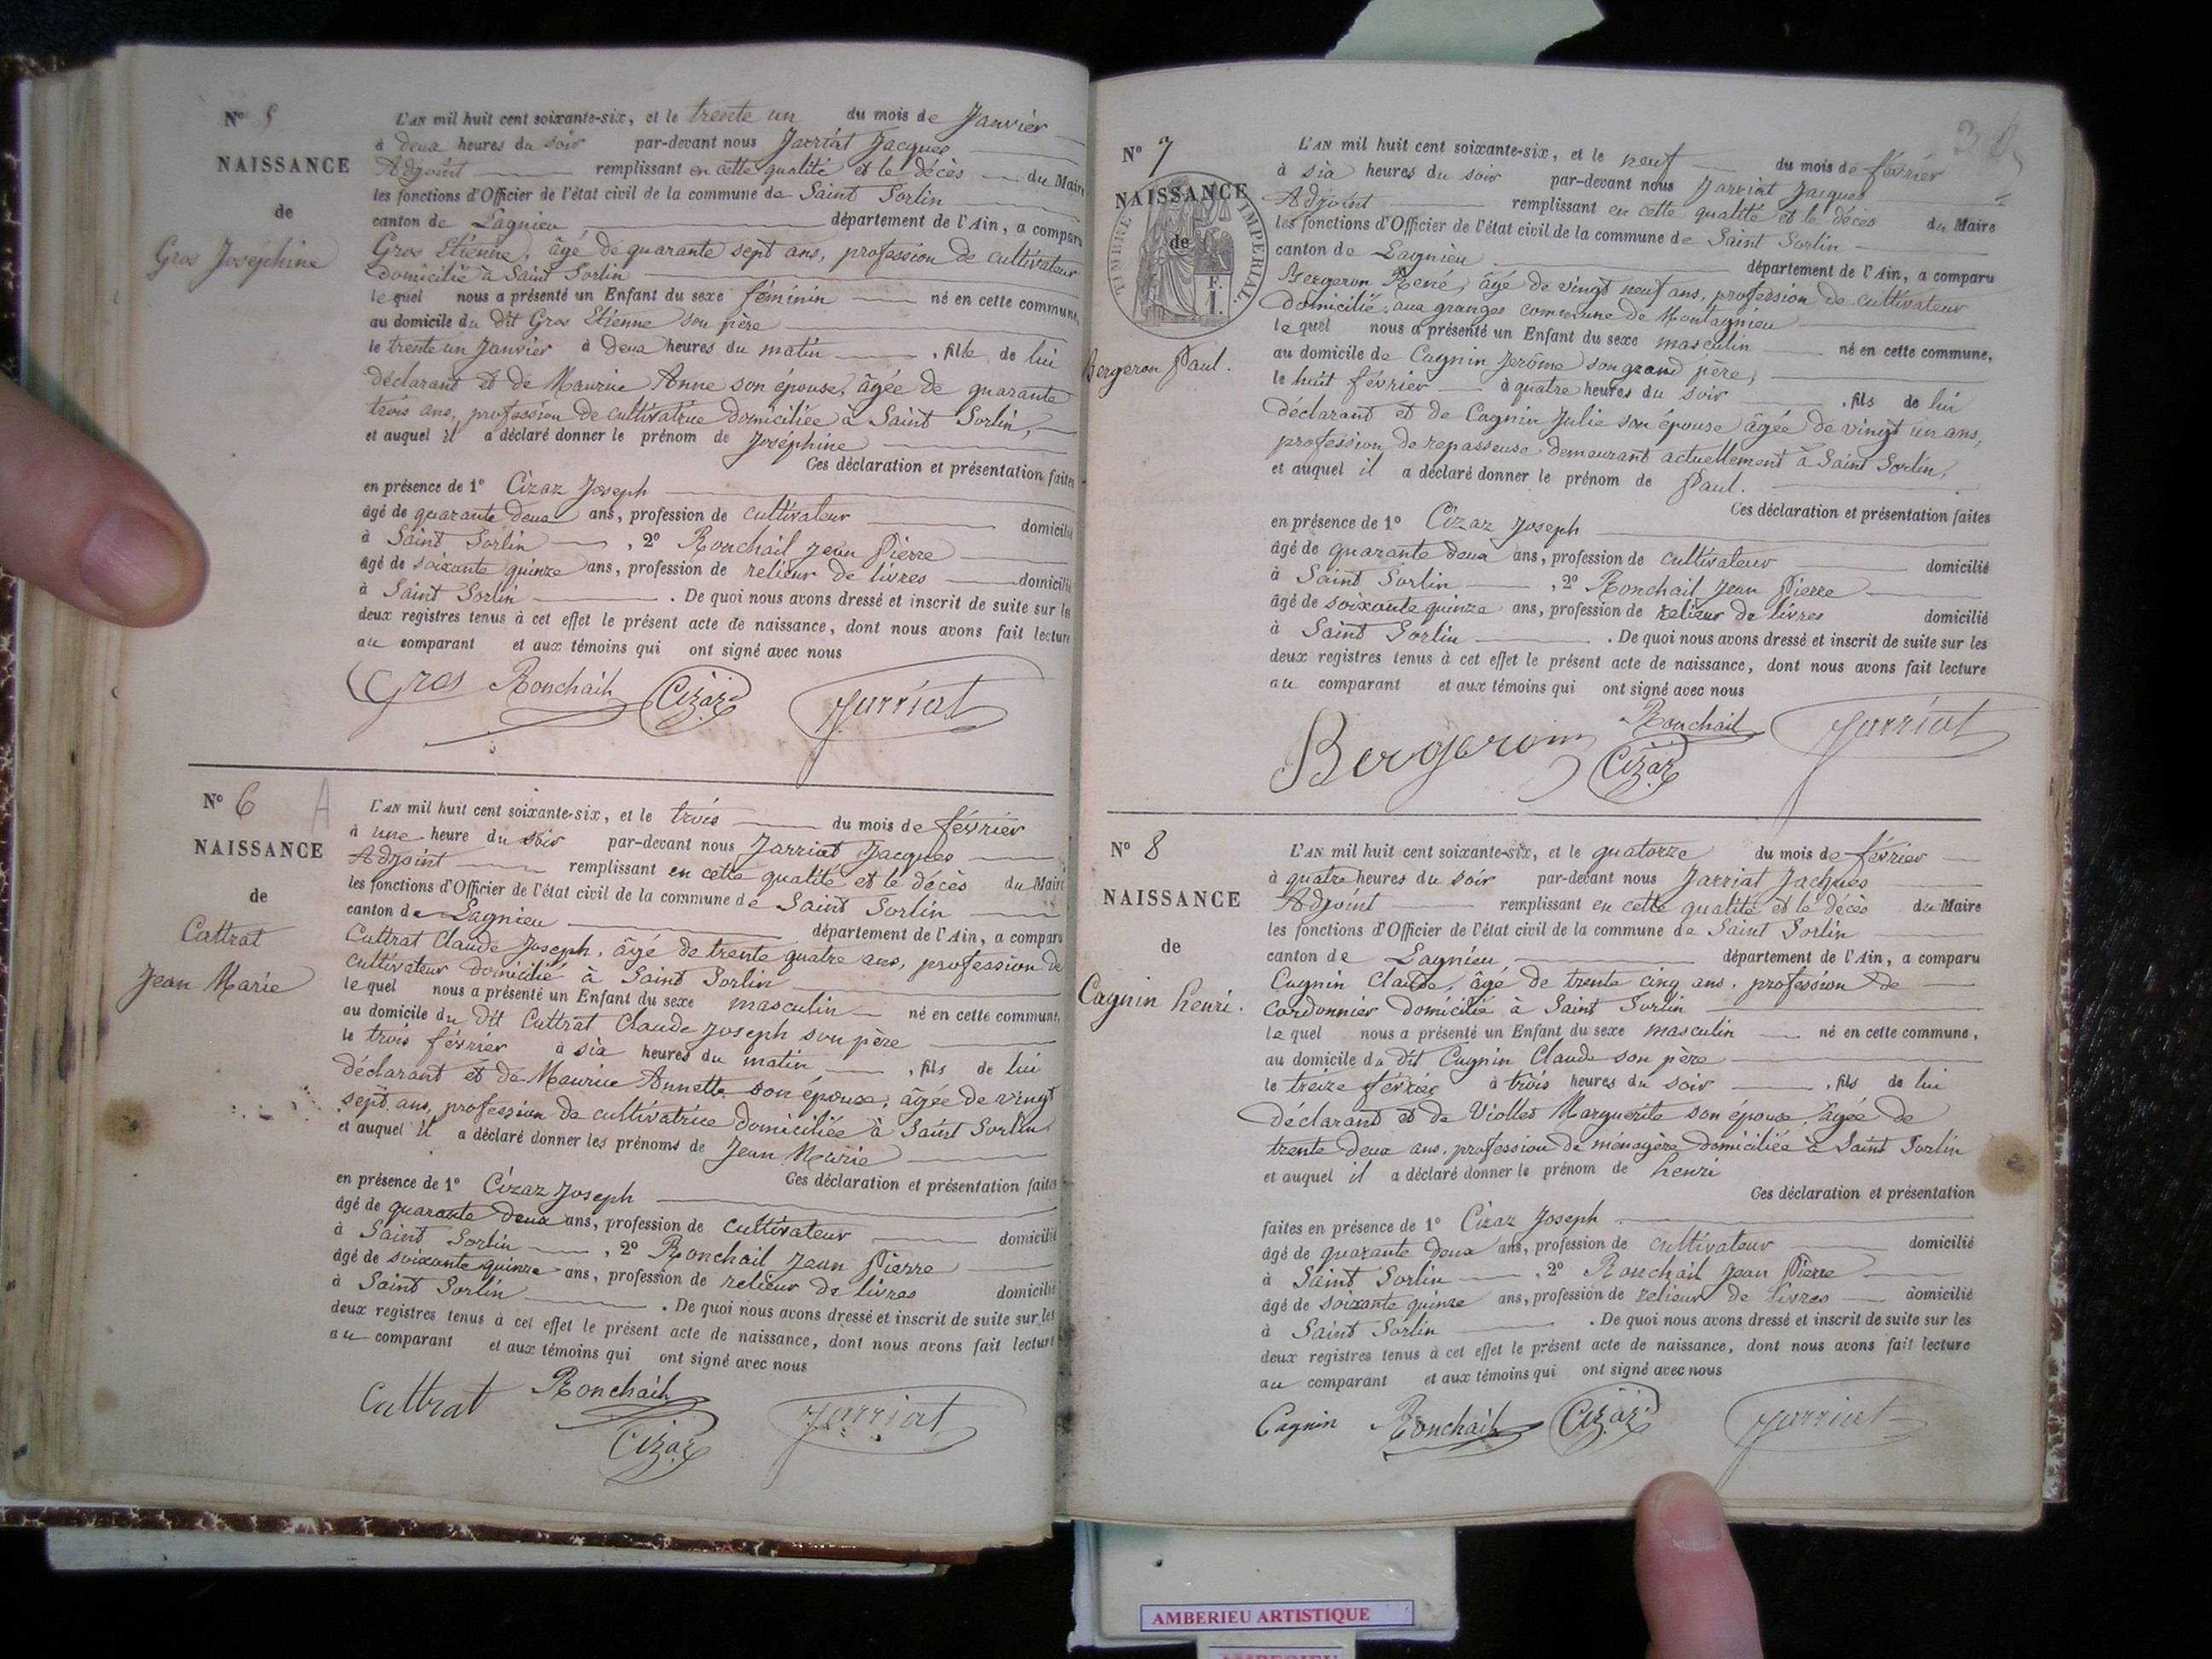 N° 5
NAISSANCE
de
Gros Joséphine
L'AN mil huit cent soixante-six, et le trente un du mois de Janvier
à deux heures du soir par-devant nous Jarriat Jacques
Adjoint remplissant en cette qualité et le décès du Maire
les fonctions d'Officier de l'état civil de la commune de Saint Sorlin
canton de Lagnieu département de l'Ain, a comparu
Gros Etienne, âgé de quarante sept ans, profession de cultivateur
domicilié à Saint Sorlin
lequel nous a présenté un Enfant du sexe féminin né en cette commune,
au domicile du dit Gros Etienne son père
le trente un Janvier à deux heures du matin , fille de lui
déclarant et de Maurice Anne son épouse, âgée de quarante
trois ans, profession de cultivatrice domiciliée à Saint Sorlin,
et auquel il a déclaré donner le prénom de Joséphine
Ces déclaration et présentation faites
en présence de 1° Cizaz Joseph
âgé de quarante deux ans, profession de cultivateur domicilié
à Saint Sorlin , 2° Ronchail Jean Pierre
âgé de soixante quinze ans, profession de relieur de livres domicilié
à Saint Sorlin . De quoi nous avons dressé et inscrit de suite sur les
deux registres tenus à cet effet le présent acte de naissance, dont nous avons fait lecture
au comparant et aux témoins qui ont signé avec nous
Gros Ronchail Cizaz Jarriat
N° 6 A
NAISSANCE
de
Cuttrat
Jean Marie
L'AN mil huit cent soixante-six, et le trois du mois de février
à une heure du soir par-devant nous Jarriat Jacques
Adjoint remplissant en cette qualité et le décès du Maire
les fonctions d'Officier de l'état civil de la commune de Saint Sorlin
canton de Lagnieu département de l'Ain, a comparu
Cuttrat Claude Joseph, âgé de trente quatre ans, profession de
cultivateur domicilié à Saint Sorlin
lequel nous a présenté un Enfant du sexe masculin né en cette commune,
au domicile du dit Cuttrat Claude Joseph son père
le trois février à six heures du matin , fils de lui
déclarant et de Maurice Annette son épouse, âgée de vingt
sept ans, profession de cultivatrice domiciliée à Saint Sorlin
et auquel il a déclaré donner les prénoms de Jean Marie
Ces déclaration et présentation faites
en présence de 1° Cizaz Joseph
âgé de quarante deux ans, profession de cultivateur domicilié
à Saint Sorlin , 2° Ronchail Jean Pierre
âgé de soixante quinze ans, profession de relieur de livres domicilié
à Saint Sorlin . De quoi nous avons dressé et inscrit de suite sur les
deux registres tenus à cet effet le présent acte de naissance, dont nous avons fait lecture
au comparant et aux témoins qui ont signé avec nous
Cuttrat Ronchail Cizaz Jarriat
N° 7
NAISSANCE
de
TIMBRE IMPERIAL.
F.
I.
Bergeron Paul.
L'AN mil huit cent soixante-six, et le neuf du mois de février
à six heures du soir par-devant nous Jarriat Jacques
Adjoint remplissant en cette qualité et le décès du Maire
les fonctions d'Officier de l'état civil de la commune de Saint Sorlin
canton de Lagnieu département de l'Ain, a comparu
Bergeron René, âgé de vingt neuf ans, profession de cultivateur
domicilié aux granges commune de Montagnieu
lequel nous a présenté un Enfant du sexe masculin né en cette commune,
au domicile de Cagnin Jerôme son grand père,
le huit février à quatre heures du soir , fils de lui
déclarant et de Cagnin Julie son épouse âgée de vingt un ans,
profession de repasseuse demeurant actuellement à Saint Sorlin,
et auquel il a déclaré donner le prénom de Paul.
Ces déclaration et présentation faites
en présence de 1° Cizaz Joseph
âgé de quarante deux ans, profession de cultivateur domicilié
à Saint Sorlin , 2° Ronchail Jean Pierre
âgé de soixante quinze ans, profession de relieur de livres domicilié
à Saint Sorlin . De quoi nous avons dressé et inscrit de suite sur les
deux registres tenus à cet effet le présent acte de naissance, dont nous avons fait lecture
au comparant et aux témoins qui ont signé avec nous
Bergeron Ronchail Cizaz Jarriat
N° 8
NAISSANCE
de
Cagnin henri.
L'AN mil huit cent soixante-six, et le quatorze du mois de février
à quatre heures du soir par-devant nous Jarriat Jacques
Adjoint remplissant en cette qualité et le décès du Maire
les fonctions d'Officier de l'état civil de la commune de Saint Sorlin
canton de Lagnieu département de l'Ain, a comparu
Cagnin Claude, âgé de trente cinq ans, profession de
cordonnier domicilié à Saint Sorlin
lequel nous a présenté un Enfant du sexe masculin né en cette commune,
au domicile du dit Cagnin Claude son père
le treize février à trois heures du soir , fils de lui
déclarant et de Viollet Marguerite son épouse, âgée de
trente deux ans, profession de ménagère domiciliée à Saint Sorlin
et auquel il a déclaré donner le prénom de henri
Ces déclaration et présentation
faites en présence de 1° Cizaz Joseph
âgé de quarante deux ans, profession de cultivateur domicilié
à Saint Sorlin , 2° Ronchail Jean Pierre
âgé de soixante quinze ans, profession de relieur de livres domicilié
à Saint Sorlin . De quoi nous avons dressé et inscrit de suite sur les
deux registres tenus à cet effet le présent acte de naissance, dont nous avons fait lecture
au comparant et aux témoins qui ont signé avec nous
Cagnin Ronchail Cizaz Jarriat
AMBERIEU ARTISTIQUE
AMBERIEU